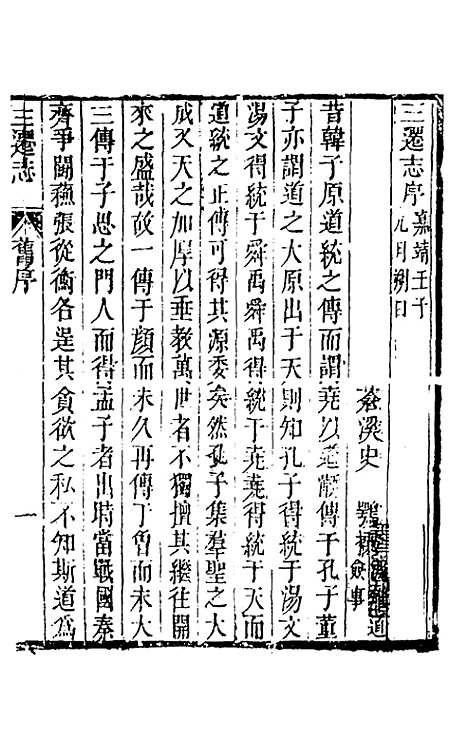 三遷志序 嘉靖壬子
九月朔日
苕溪史鶚 僉事
道
昔韓子原道統之傳而謂堯以道顓傳于孔子董
子亦謂道之大原出于天則知孔子得統于湯文
湯文得統于舜禹舜禹得統于堯堯得統于天而
道統之正傳可得其源委矣然孔子集羣聖之大
成又天之加厚以垂教萬世者不獨擅其繼往開
來之盛哉故一傳于顏而未久再傳于魯而未大
三傳于子思之門人而得孟子者出時當戰國秦
齊爭鬪蘓張從衡各逞其貪欲之私不知斯道爲
三遷志 舊序 一